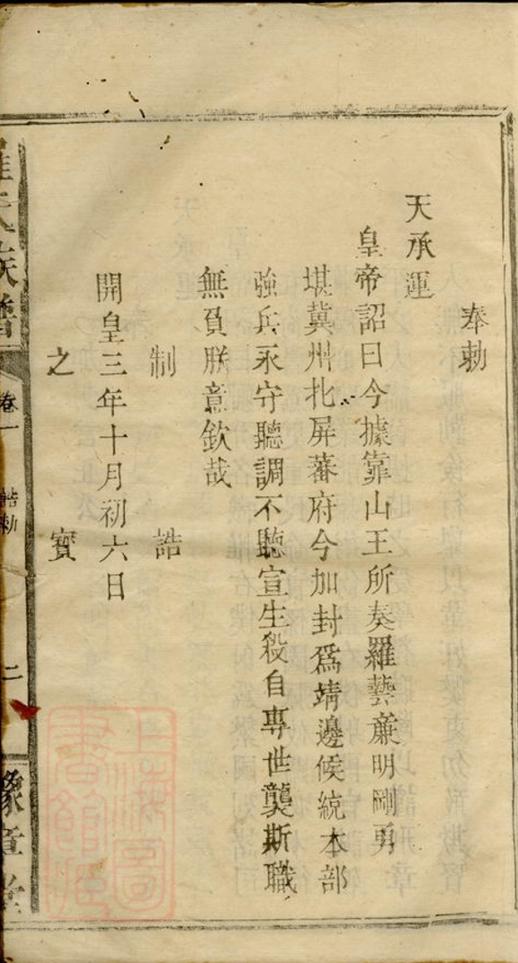 奉勅
天承運
皇帝詔曰今據靠山王所奏羅藝亷明剛勇
堪冀州北屏藩府今加封爲靖邊候統本部
強兵永守聽調不聽宣生殺自專世襲斯職
無負朕意欽哉
制誥
開皇三年十月初六日
之寳
羅氏族譜
卷一
誥勅
二
豫章堂
上海圖書館藏